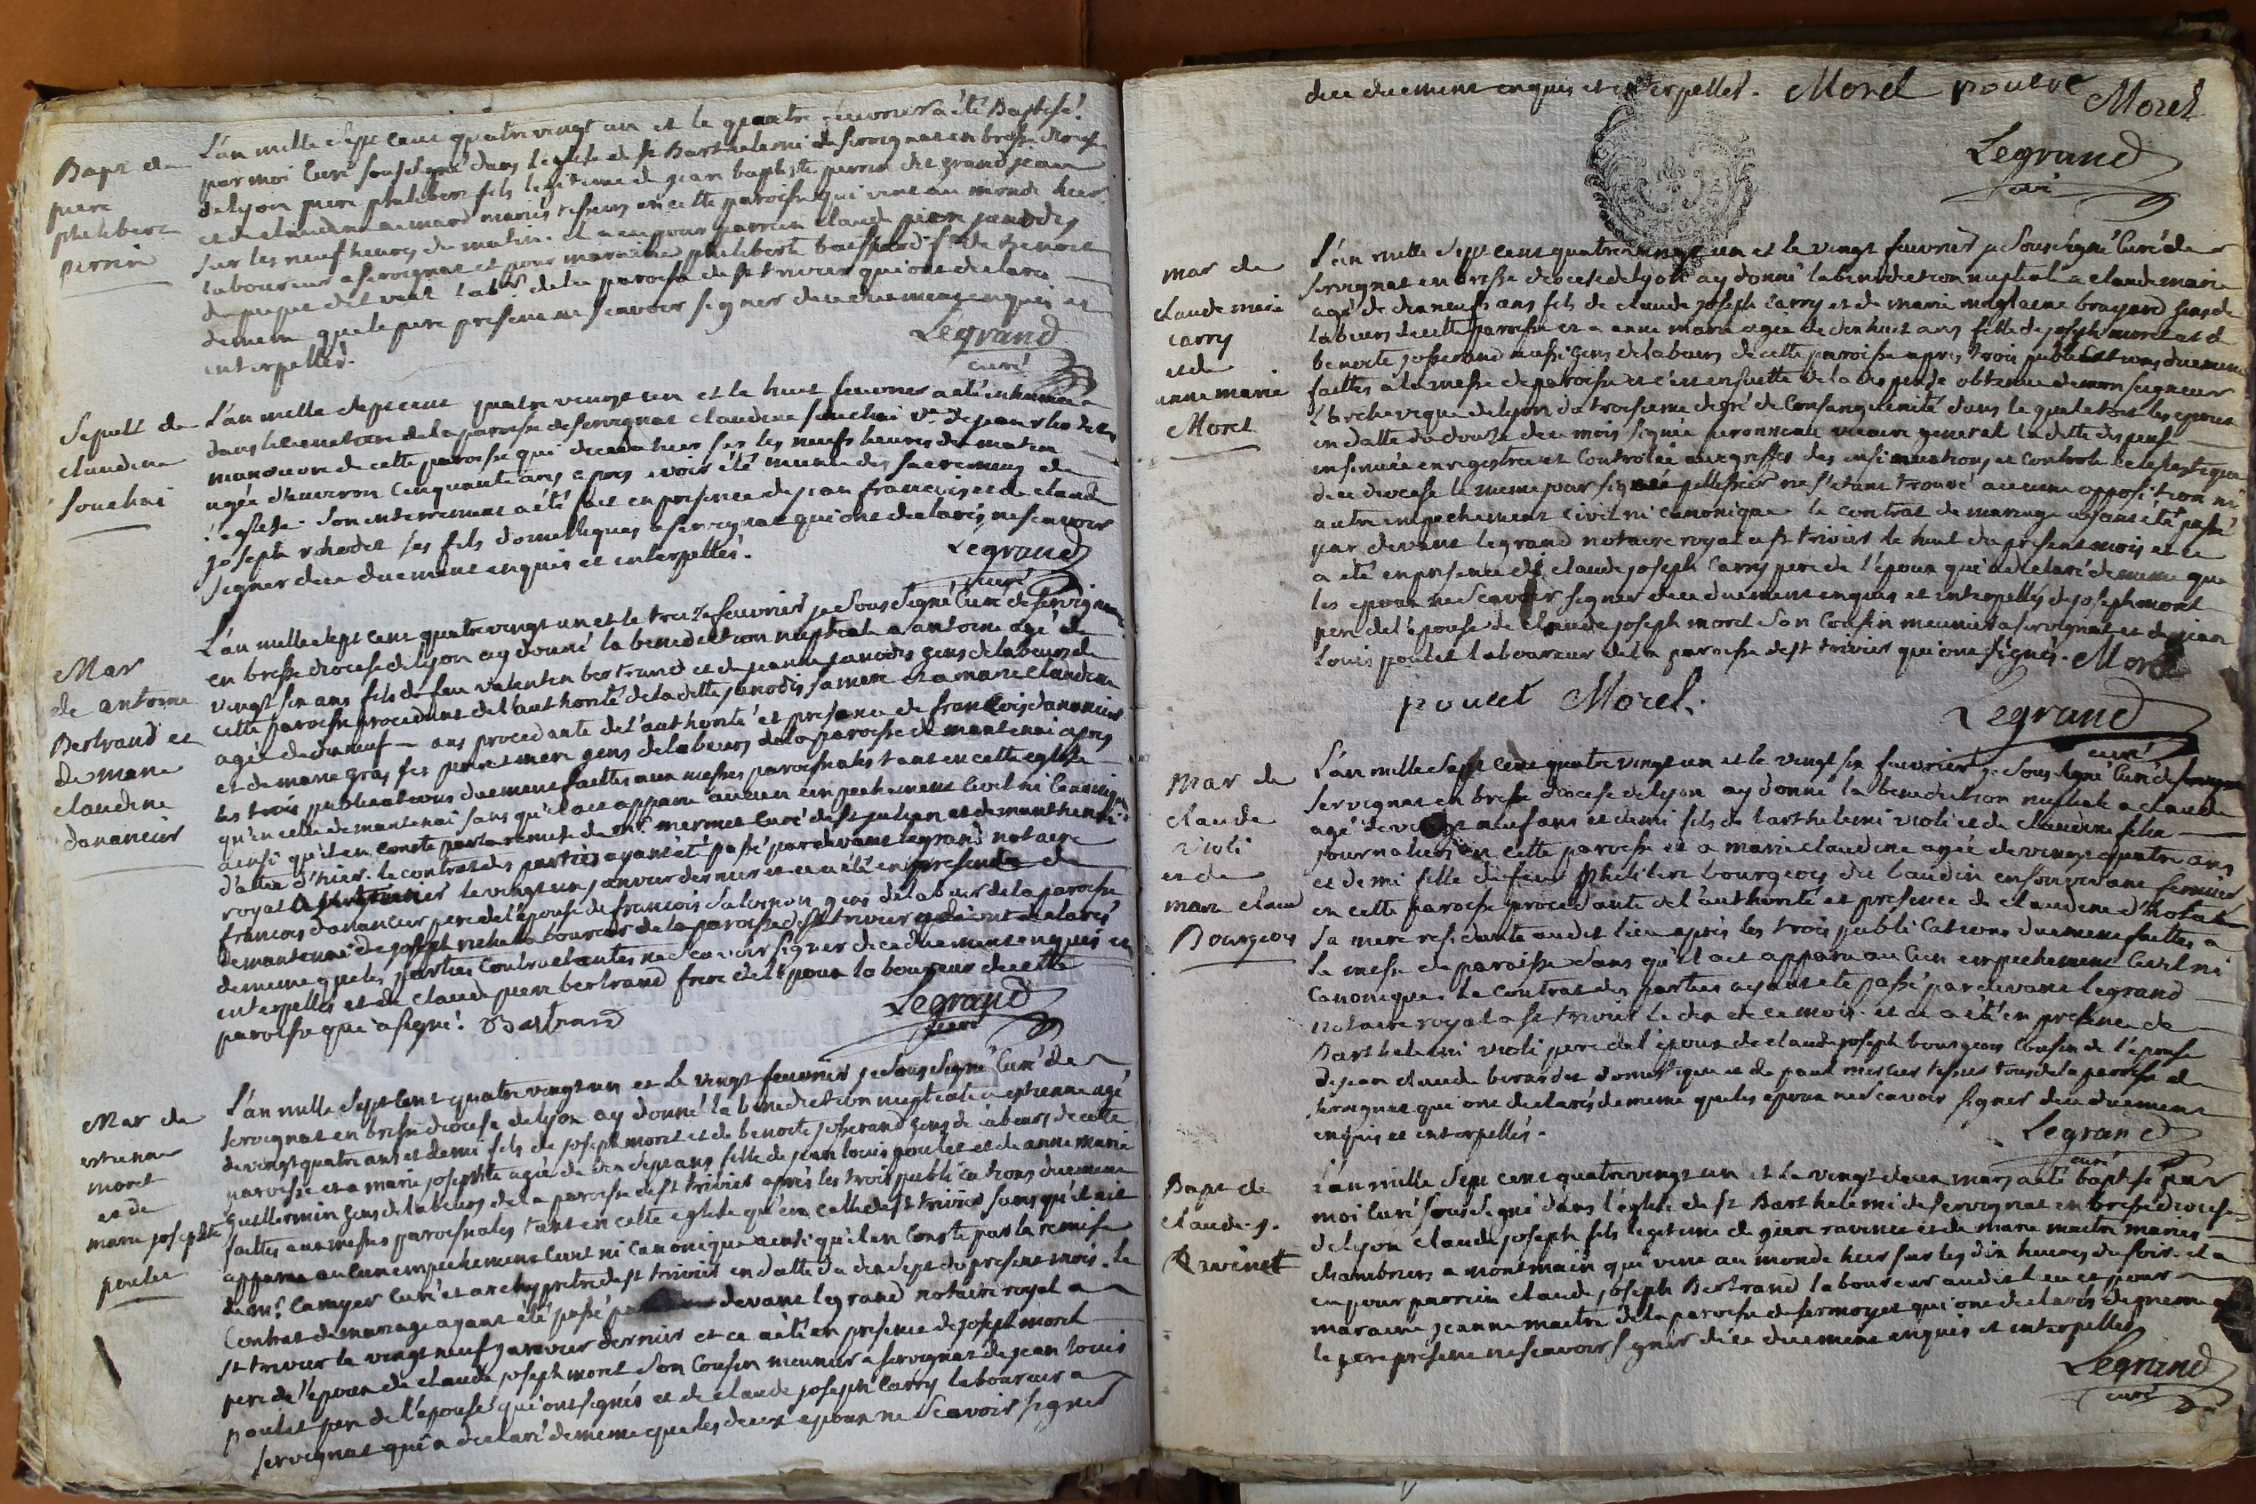 Bapt de
piere
philibert
perrin
L'an mille sept cent quatre vingt un et le quatre feuvrier a été Baptisé
par moi Curé soussigné dans l'eglise de st Barthelemi de servignat en bresse diocese
de lyon piere philibert fils legitime de jean baptiste perrin dit grand jean
et de claudine mariés en cette paroisse qui vint au monde hier
sur les neuf heures du matin. il a eu pour parrain claude piere janodis
laboureur a servignat et pour marraine philiberte de Benoit
de la paroisse de st trivier qui ont declaré
de meme que le pere présent ne scavoir signer de ce duement enquis et
interpellés.
Legrand
curé
Sepult de
claudine
souchai
L'an mille sept cent quatre vingt un et le huit feuvrier a été inhumée
dans le cimetiere de la paroisse de servignat claudine souchai ve de jean rhodet
manœuvre de cette paroisse qui deceda hier sur les neufs heures du matin
agée d'environ cinquante ans apres avoir été munie des sacremens de
l'eglise. son enterrement a été fait en presence de jean francois et de claude
joseph rhodet ses fils domestiques a servignat qui ont declarés ne scavoir
signer de ce duement enquis et interpellés.
Legrand
curé
Mar
de antoine
Bertrand et
de marie
claudine
danancier
L'an mille sept cent quatre vingt un et le treize feuvrier je sous signé Curé de servignat
en bresse diocese de lyon ay donné la benediction nuptiale a antoine agé de
vingt six ans fils de feu valentin bertrand et de jeanne janodis gens de labeurs de
cette paroisse procedant de l'authorité de la dette janodis sa mere et a marie claudine
agée de dixneuf ans procedante de l'authorité et presence de francois dananciér
et de marie gras ses pere et mere gens de labeurs de la paroisse de mantenai apres
les trois publications duement faittes aux messes paroissiales tant en cette eglise
qu'en celle de mantenai sans qu'il ait apparu aucun empechement Civil ni Canonique
ainsi qu'il en conste par la remise de mr mermet Curé de st julien et de manthenai
d'atte d'hier. le contrat des parties ayant été passé par devant legrand notaire
royal a st trivier le vingt un janvier dernier et ce a été en presence de
francois dananciér pere de l'epouse de francois salornon gens de labeur de la paroisse
de mantenai de joseph laboureur de la paroisse de st trivier qui ont declarés
de meme que les parties Contractantes ne scavoir signer de ce duement enquis et
interpellés et de Claude piere bertrand frere de l'epoux laboureur de cette
paroisse qui a signé. Bertrand
Legrand
curé
Mar de
estienne
morel
et de
marie josephte
poulet
L'an mille sept cent quatre vingt un et le vingt feuvrier je sous signé Curé de
servignat en bresse diocese de lyon ay donné la benediction nuptiale a estienne agé
de vingt quatre ans et demi fils de joseph morel et de benoite josserand gens de labeurs de cette
paroisse et a marie josephte agée de dix sept ans fille de jean louis poulet et de anne marie
guillermin gens de labeurs de la paroisse de st trivier après les trois publications duement
faittes aux messes paroissiales tant en cette eglise qu'en celle de st trivier sans qu'il ait
apparu aucun empechement Civil ni Canonique ainsi qu'il en Conste par la remise
de mr Camyer Curé et archyprêtre de st trivier en datte du dix sept du present mois. le
Contrat de mariage ayant été passé par devant legrand notaire royal a
st trivier le vingt neuf janvier dernier et ce a été en presence de joseph morel
pere de l'epoux de claude joseph morel son Cousin meunier a servignat de jean louis
poulet pere de l'epouse qui ont signés et de claude joseph Carry laboureur a
servignat qui a declaré de meme que les deux epoux ne scavoir signer
de ce duement enquis et interpellés. Morel poulet Morel
Legrand
curé
mar de
claude marie
carry
et de
anne marie
Morel
L'an mille sept cent quatre vingt un et le vingt feuvrier je Soussigné Curé de
servignat en bresse diocese de lyon ay donné la benediction nuptiale a claude marie
agé de dixneufs ans fils de claude joseph Carry et de marie maglaene broyard gens de
labeurs de cette paroisse et a anne marie agée de dix huit ans fille de joseph morel et de
benoite josserand aussi gens de labeurs de cette paroisse apres trois publications duement
faittes a la messe de paroisse et c'est ensuitte de la dispense obtenue de mon seigneur
l'archeveque de lyon du troisieme degré de Consanguinité dans le quel etoit les epoux
en datte du douze de ce mois signée vicaire general la dette dispense
insinuée enregistrée et Controlée aux greffes des insinuations et controle ecclesiastiques
de ce diocese le meme jour signée pellissier ne s'etant trouvé aucune opposition ni
autre empechement Civil ni canonique le contrat de mariage ayant été passé
par devant legrand notaire royal a st trivier le huit du present mois et ce
a été en presence de claude joseph Carry pere de l'epoux qui a declaré de meme que
les epoux ne Scavoir signer de ce duement enquis et interpellés de joseph morel
pere de l'epouse de claude joseph morel son Cousin meunier a servignat et de jean
louis poulet laboureur de la paroisse de st trivier qui ont signés. Morel
poulet Morel.
Legrand
curé
Mar de
claude
violi
et de
marie claud
Bourgeois
L'an mille sept cent quatre vingt un et le vingt six feuvrier je sous signé Curé de
servignat en bresse diocese de lyon ay donné la benediction nuptiale a claude
agé de vingt neuf ans et demi fils de barthelemi violi et de claudine felix
journaliers en cette paroisse et a marie claudine agée de vingt quatre ans
et demi fille de feu philibert bourgeois dit baudin en son vivant fermier
en cette paroisse procedante de l'authorité et presence de claudine d'hotal
sa mere residante audit lieu après les trois publications duement faittes a
la messe de paroisse sans qu'il ait apparu aucun empechement Civil ni
Canonique. le contrat des parties ayant été passé par devant legrand
notaire royal a st trivier le dix de ce mois et ce a été en presence de
Barthelemi violi pere de l'epoux de claude joseph bourgeois Cousin de l'epouse
de jean claude berardet domestique et de paul mercier tissier tous de la paroisse de
servignat qui ont declarés de meme que les epoux ne scavoir signer de ce duement
enquis et interpellés.
Legrand
curé
Bapt de
claude j.
Ravinet
L'an mille sept cent quatre vingt un et le vingt deux mars a été baptisé par
moi Curé sous signé dans l'église de st Barthelemi de servignat en bresse diocese
de lyon claude joseph fils legitime de piere ravinet et de marie maitre mariés
chambriers a montmain qui vint au monde hier sur les dix heures du soir. il a
eu pour parrein claude joseph Bertrand laboureur audit lieu et pour
maraine jeanne maitre de la paroisse de sermoyer qui ont declarés de meme que
le pere présent ne scavoir signer de ce duement enquis et interpellés
Legrand
curé